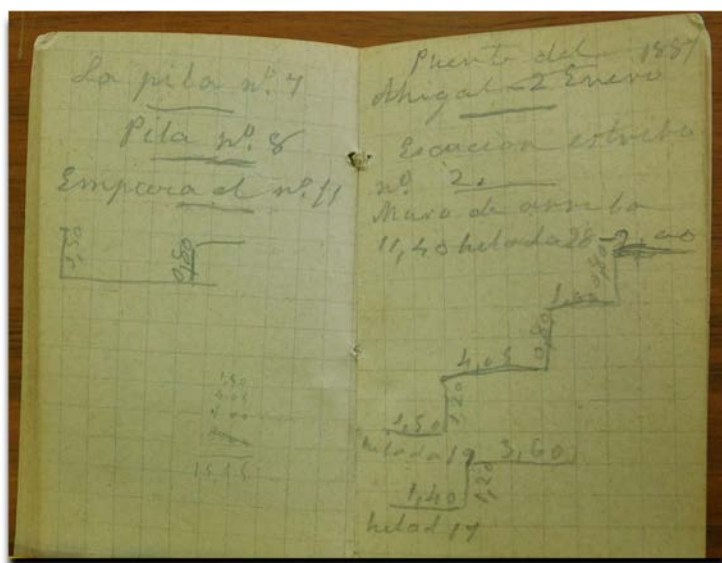 La pila nº. 7
Pila nº. 8
Empieza el nº. 11
1,50
0,80
1,50
4,05
Puente del 1887
Ahigal - 2 Enero
estribo
nº. 2.
Muro de arriba
11,40 helada 28
0,80
0,80
4,05
1,20
1,50
helada 19
3,60
1,20
1,40
helad 17